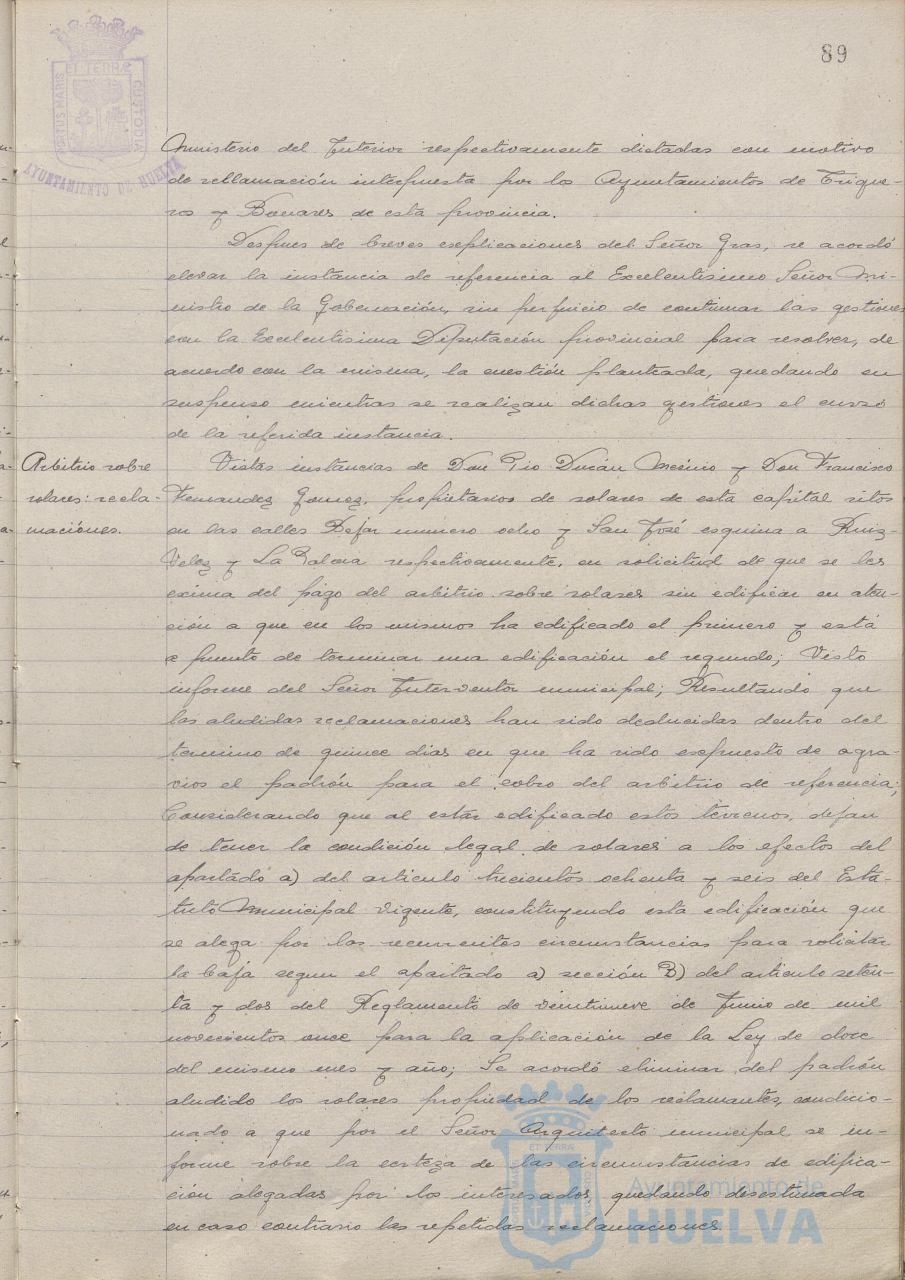 89
PORTUS MARIS
ET TERRÆ
CUSTODIA
AYUNTAMIENTO DE HUELVA
Ministerio del Interior respectivamente dictadas con motivo
de reclamación interpuesta por los Ayuntamientos de Trigue-
ros y Bonares de esta provincia.
Despues de breves esplicaciones del Señor Gras, se acordó
elevar la instancia de referencia al Excelentisimo Señor Mi-
nistro de la Gobernación, sin perjuicio de continuar las gestiones
con la Excelentisima Diputación provincial para resolver, de
acuerdo con la misma, la cuestión planteada, quedando en
suspenso mientras se realizan dichas gestiones el curso
de la referida instancia.
Arbitrio sobre
solares: recla-
maciónes.
Vistas instancias de Don Pio Durán y Don Francisco
Fernandez Gomez, propietarios de solares de esta capital sitos
en las calles Bejar numero ocho y San José esquina a Ruiz
Velez y La respectivamente, en solicitud de que se les
exima del pago del arbitrio sobre solares sin edificar en aten-
ción a que en los mismos ha edificado el primero y está
a punto de terminar una edificación el segundo; Visto
informe del Señor Interventor municipal; Resultando que
las aludidas reclamaciones han sido deducidas dentro del
termino de quince dias en que ha sido espuesto de agra-
vios el padrón para el cobro del arbitrio de referencia;
Considerando que al estar edificado estos terrenos, dejan
de tener la condición legal de solares a los efectos del
apartado a) del articulo trecientos ochenta y seis del Esta-
tuto Municipal vigente, constituyendo esta edificación que
se alega por los recurrentes circunstancias para solicitar
la baja segun el apartado a) sección B) del articulo seten-
ta y dos del Reglamento de veintinueve de Junio de mil
novecientos once para la aplicación de la Ley de doce
del mismo mes y año; Se acordó eliminar del padrón
aludido los solares propiedad de los reclamantes, condicio-
nado a que por el Señor Arquitecto municipal se in-
forme sobre la certeza de las circunstancias de edifica-
ción alegadas por los interesados, quedando desestimada
en caso contrario las repetidas reclamaciones.
Ayuntamiento de
HUELVA